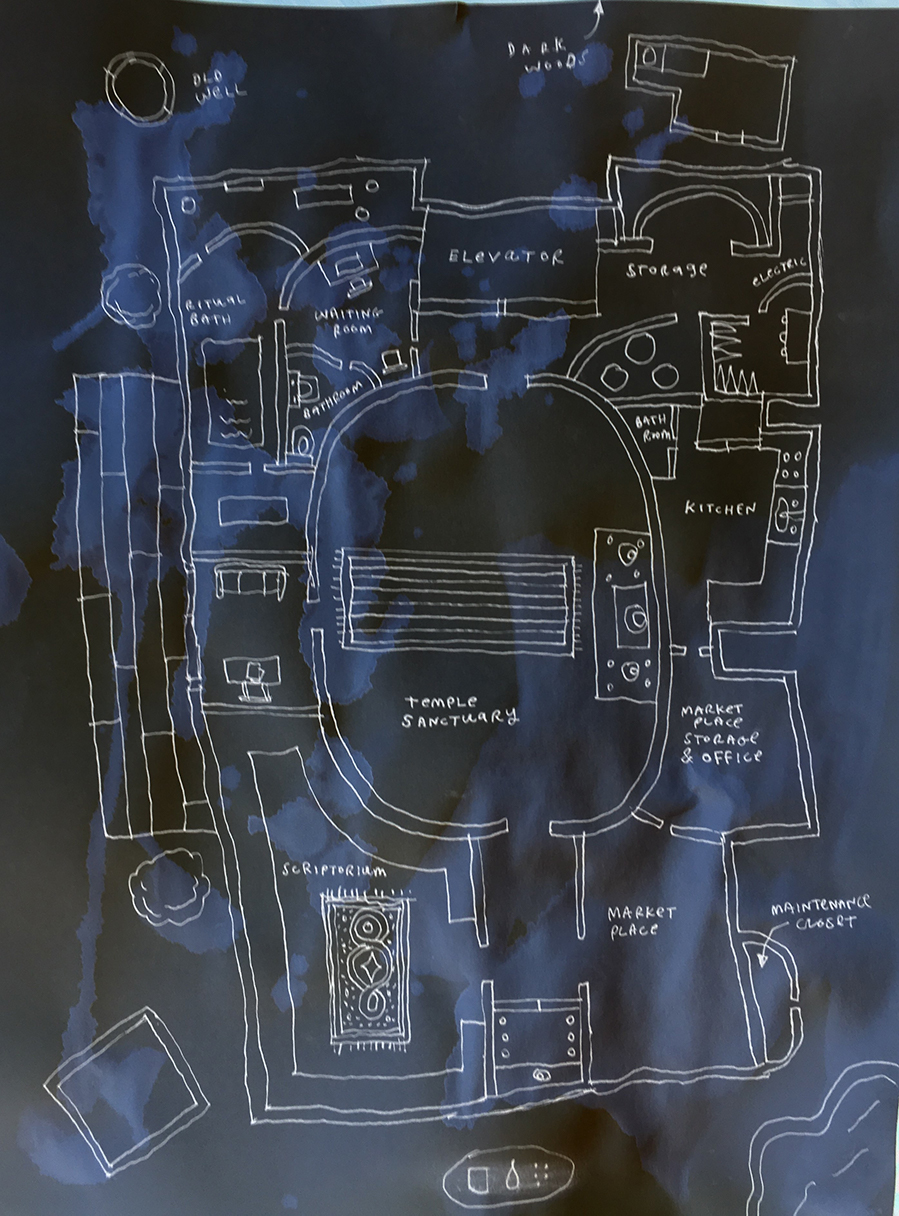 OLD
WELL
DARK
WOODS
ELEVATOR
STORAGE
ELECTRIC
RITUAL
BATH
WAITING
ROOM
BATHROOM
BATH
ROOM
KITCHEN
TEMPLE
SANCTUARY
MARKET
PLACE
STORAGE
& OFFICE
SCRIPTORIUM
MARKET
PLACE
MAINTENANCE
CLOSET